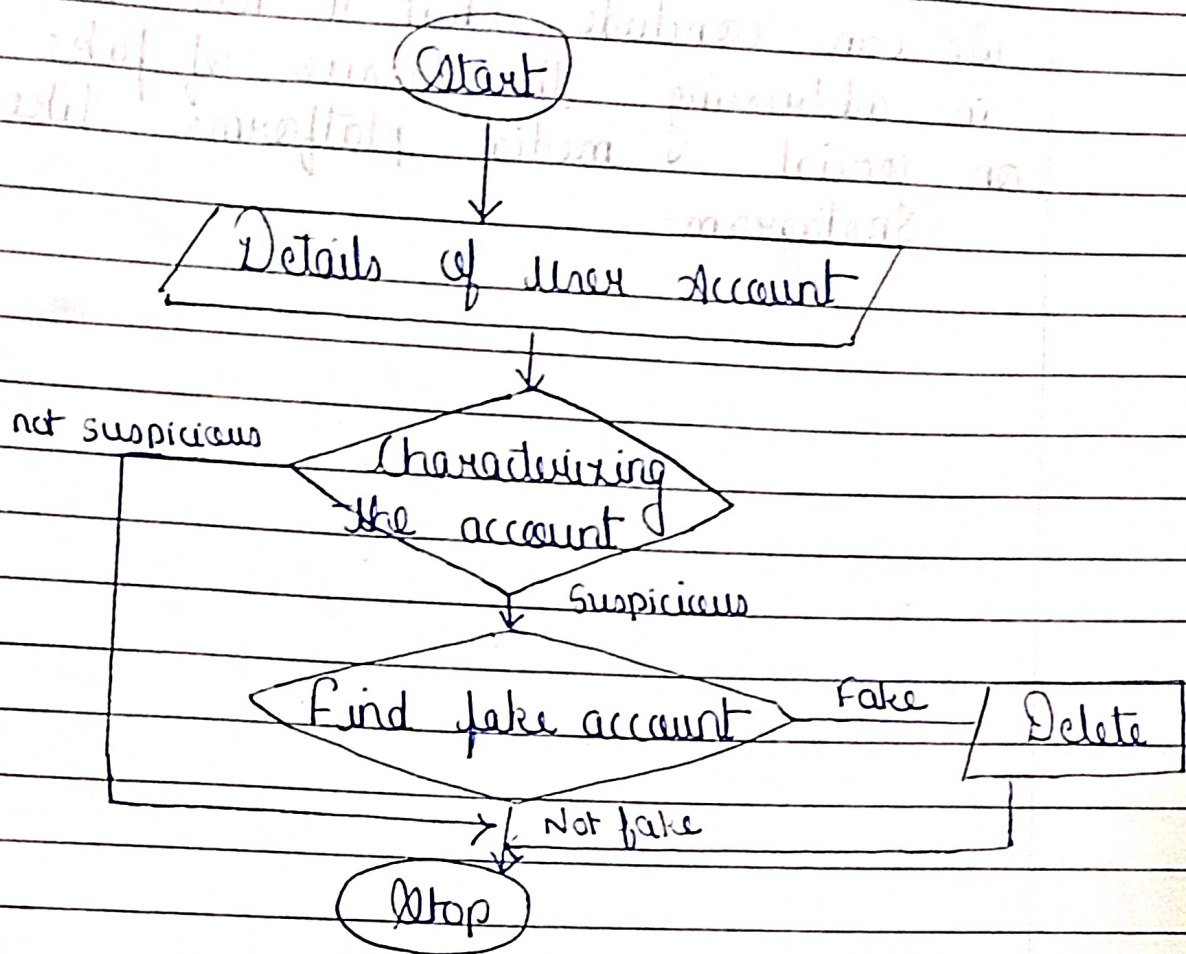 Start
Details of User Account
not suspicious
Characterizing
the account
Suspicious
Find fake account
Fake
Delete
Not fake
Stop